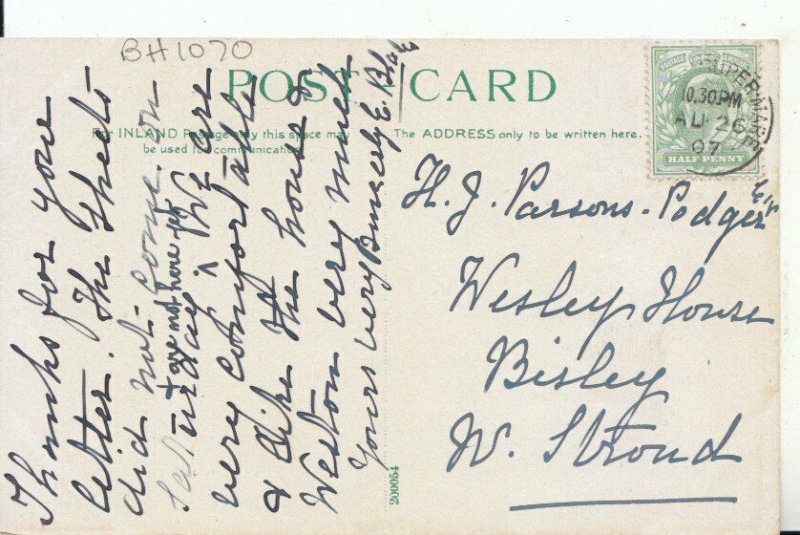 BH1070
POST CARD
For INLAND Postage only this space may
be used for communication.
The ADDRESS only to be written here.
SUPER-MARE
10.30PM
AU 26
07
HALF PENNY
H. J. Parsons-Podger Esqr
Wesley House
Bisley
N. Stroud
Thanks for your
letter. The sheets
did not come on
Saturday & are not here yet We are
very comfortable
& like the house &
Weston very much
Yours very Sincerely E.
200054